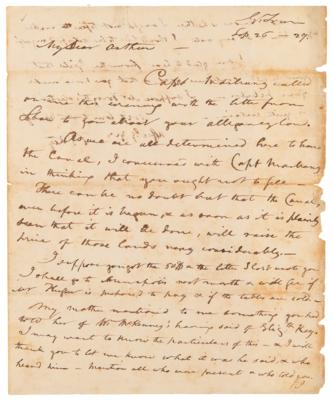 Geo. Town
Sep. 26. — 27.
My dear Arthur —
Capt. called
on me this evening with the letter from
to you about your allegany lands
As we are all determined here to have
the Canal, I concurred with Capt
in thinking that you ought not to sell —
There can be no doubt but that the Canal,
even before it is begun, & as soon as it is plainly
seen that it will be done, will raise the
price of those lands very considerably —
I suppose you got the 50$ & the letter I last wrote you
I shall go to Annapolis next month
Mr. is prepared to pay if the
My mother mentioned to me something you had
told her of Mr. McKenny's having said of Eliz. Key.
I may want to know the particulars of this — & I will
thank you to let me know what it was he said & who
heard him — Mention all who were present & who told you